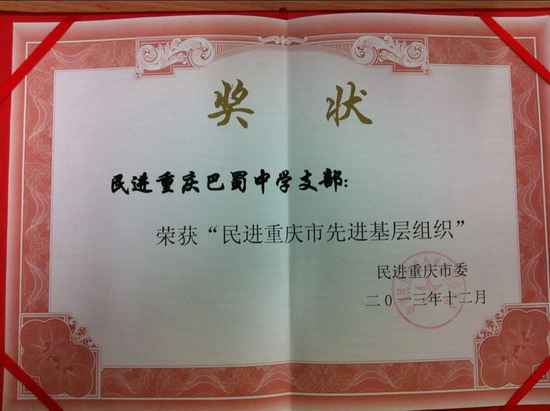 奖 状
民进重庆巴蜀中学支部：
荣获“民进重庆市先进基层组织”
民进重庆市委
二0一三年十二月